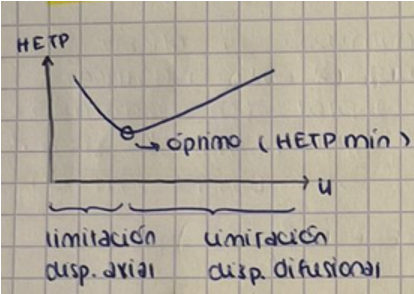 HETP
óptimo (HETP min)
u
limitación limitación
disp. axial disp. difusional